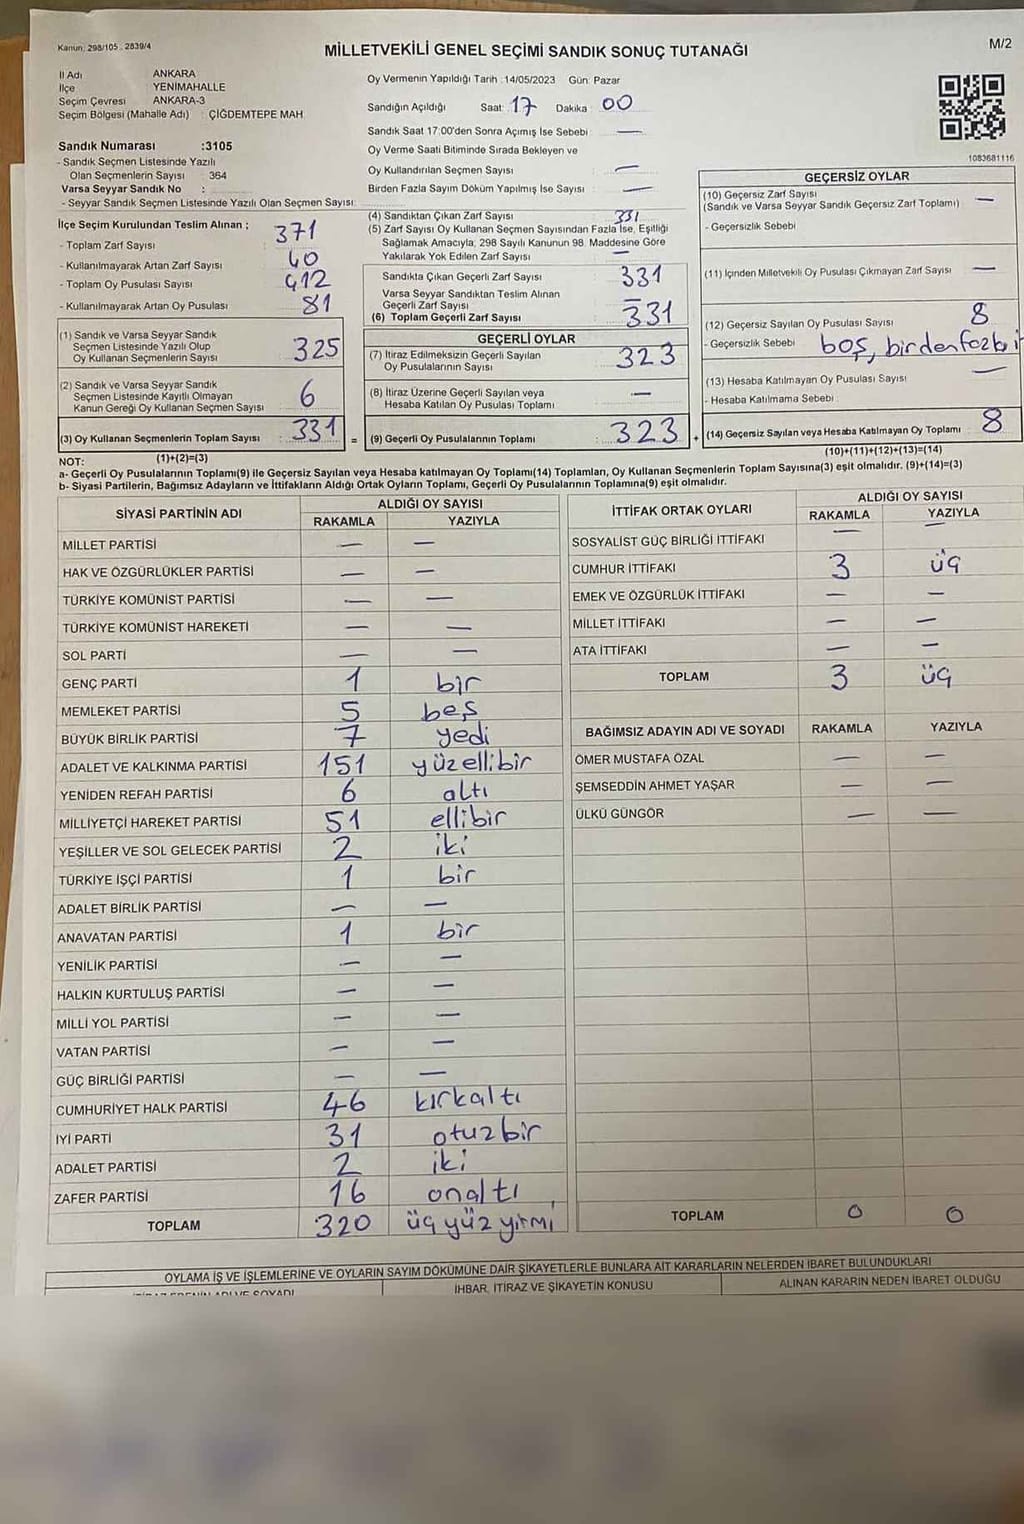 Kanun: 298/105 . 2839/4
MİLLETVEKİLİ GENEL SEÇİMİ SANDIK SONUÇ TUTANAĞI
M/2
İl Adı ANKARA
İlçe YENİMAHALLE
Seçim Çevresi ANKARA-3
Seçim Bölgesi (Mahalle Adı) : ÇİĞDEMTEPE MAH.
Sandık Numarası :3105
- Sandık Seçmen Listesinde Yazılı
Olan Seçmenlerin Sayısı : 364
Varsa Seyyar Sandık No :
- Seyyar Sandık Seçmen Listesinde Yazılı Olan Seçmen Sayısı:
Oy Vermenin Yapıldığı Tarih :14/05/2023 Gün: Pazar
Sandığın Açıldığı Saat: 17 Dakika: 00
Sandık Saat 17:00'den Sonra Açımış İse Sebebi : —
Oy Verme Saati Bitiminde Sırada Bekleyen ve
Oy Kullandırılan Seçmen Sayısı : —
Birden Fazla Sayım Döküm Yapılmış İse Sayısı : —
1083681116
İlçe Seçim Kurulundan Teslim Alınan ;
- Toplam Zarf Sayısı : 371
- Kullanılmayarak Artan Zarf Sayısı : 40
- Toplam Oy Pusulası Sayısı : 412
- Kullanılmayarak Artan Oy Pusulası : 81
(1) Sandık ve Varsa Seyyar Sandık
Seçmen Listesinde Yazılı Olup
Oy Kullanan Seçmenlerin Sayısı : 325
(2) Sandık ve Varsa Seyyar Sandık
Seçmen Listesinde Kayıtlı Olmayan
Kanun Gereği Oy Kullanan Seçmen Sayısı : 6
(3) Oy Kullanan Seçmenlerin Toplam Sayısı : 331 =
(4) Sandıktan Çıkan Zarf Sayısı : 331
(5) Zarf Sayısı Oy Kullanan Seçmen Sayısından Fazla İse, Eşitliği
Sağlamak Amacıyla; 298 Sayılı Kanunun 98. Maddesine Göre
Yakılarak Yok Edilen Zarf Sayısı : —
Sandıkta Çıkan Geçerli Zarf Sayısı : 331
Varsa Seyyar Sandıktan Teslim Alınan
Geçerli Zarf Sayısı : —
(6) Toplam Geçerli Zarf Sayısı : 331
GEÇERLİ OYLAR
(7) İtiraz Edilmeksizin Geçerli Sayılan
Oy Pusulalarının Sayısı : 323
(8) İtiraz Üzerine Geçerli Sayılan veya
Hesaba Katılan Oy Pusulası Toplamı : —
(9) Geçerli Oy Pusulalarının Toplamı : 323 +
GEÇERSİZ OYLAR
(10) Geçersiz Zarf Sayısı : —
(Sandık ve Varsa Seyyar Sandık Geçersiz Zarf Toplamı)
- Geçersizlik Sebebi
(11) İçinden Milletvekili Oy Pusulası Çıkmayan Zarf Sayısı : —
(12) Geçersiz Sayılan Oy Pusulası Sayısı : 8
- Geçersizlik Sebebi : boş,
(13) Hesaba Katılmayan Oy Pusulası Sayısı : —
- Hesaba Katılmama Sebebi :
(14) Geçersiz Sayılan veya Hesaba Katılmayan Oy Toplamı : 8
NOT: (1)+(2)=(3)
(10)+(11)+(12)+(13)=(14)
a- Geçerli Oy Pusulalarının Toplamı(9) ile Geçersiz Sayılan veya Hesaba katılmayan Oy Toplamı(14) Toplamları, Oy Kullanan Seçmenlerin Toplam Sayısına(3) eşit olmalıdır. (9)+(14)=(3)
b- Siyasi Partilerin, Bağımsız Adayların ve İttifakların Aldığı Ortak Oyların Toplamı, Geçerli Oy Pusulalarının Toplamına(9) eşit olmalıdır.
SİYASİ PARTİNİN ADI ALDIĞI OY SAYISI
RAKAMLA YAZIYLA
MİLLET PARTİSİ — —
HAK VE ÖZGÜRLÜKLER PARTİSİ — —
TÜRKİYE KOMÜNİST PARTİSİ — —
TÜRKİYE KOMÜNİST HAREKETİ — —
SOL PARTİ — —
GENÇ PARTİ 1 bir
MEMLEKET PARTİSİ 5 beş
BÜYÜK BİRLİK PARTİSİ 7 yedi
ADALET VE KALKINMA PARTİSİ 151 yüzellibir
YENİDEN REFAH PARTİSİ 6 altı
MİLLİYETÇİ HAREKET PARTİSİ 51 ellibir
YEŞİLLER VE SOL GELECEK PARTİSİ 2 iki
TÜRKİYE İŞÇİ PARTİSİ 1 bir
ADALET BİRLİK PARTİSİ — —
ANAVATAN PARTİSİ 1 bir
YENİLİK PARTİSİ — —
HALKIN KURTULUŞ PARTİSİ — —
MİLLİ YOL PARTİSİ — —
VATAN PARTİSİ — —
GÜÇ BİRLİĞİ PARTİSİ — —
CUMHURİYET HALK PARTİSİ 46 kırkaltı
İYİ PARTİ 31 otuzbir
ADALET PARTİSİ 2 iki
ZAFER PARTİSİ 16 onaltı
TOPLAM 320 üç yüz yirmi
İTTİFAK ORTAK OYLARI ALDIĞI OY SAYISI
RAKAMLA YAZIYLA
SOSYALİST GÜÇ BİRLİĞİ İTTİFAKI — —
CUMHUR İTTİFAKI 3 üç
EMEK VE ÖZGÜRLÜK İTTİFAKI — —
MİLLET İTTİFAKI — —
ATA İTTİFAKI — —
TOPLAM 3 üç
BAĞIMSIZ ADAYIN ADI VE SOYADI RAKAMLA YAZIYLA
ÖMER MUSTAFA ÖZAL — —
ŞEMSEDDİN AHMET YAŞAR — —
ÜLKÜ GÜNGÖR — —
TOPLAM 0 0
OYLAMA İŞ VE İŞLEMLERİNE VE OYLARIN SAYIM DÖKÜMÜNE DAİR ŞİKAYETLERLE BUNLARA AİT KARARLARIN NELERDEN İBARET BULUNDUKLARI
İHBAR, İTİRAZ VE ŞİKAYETİN KONUSU
ALINAN KARARIN NEDEN İBARET OLDUĞU